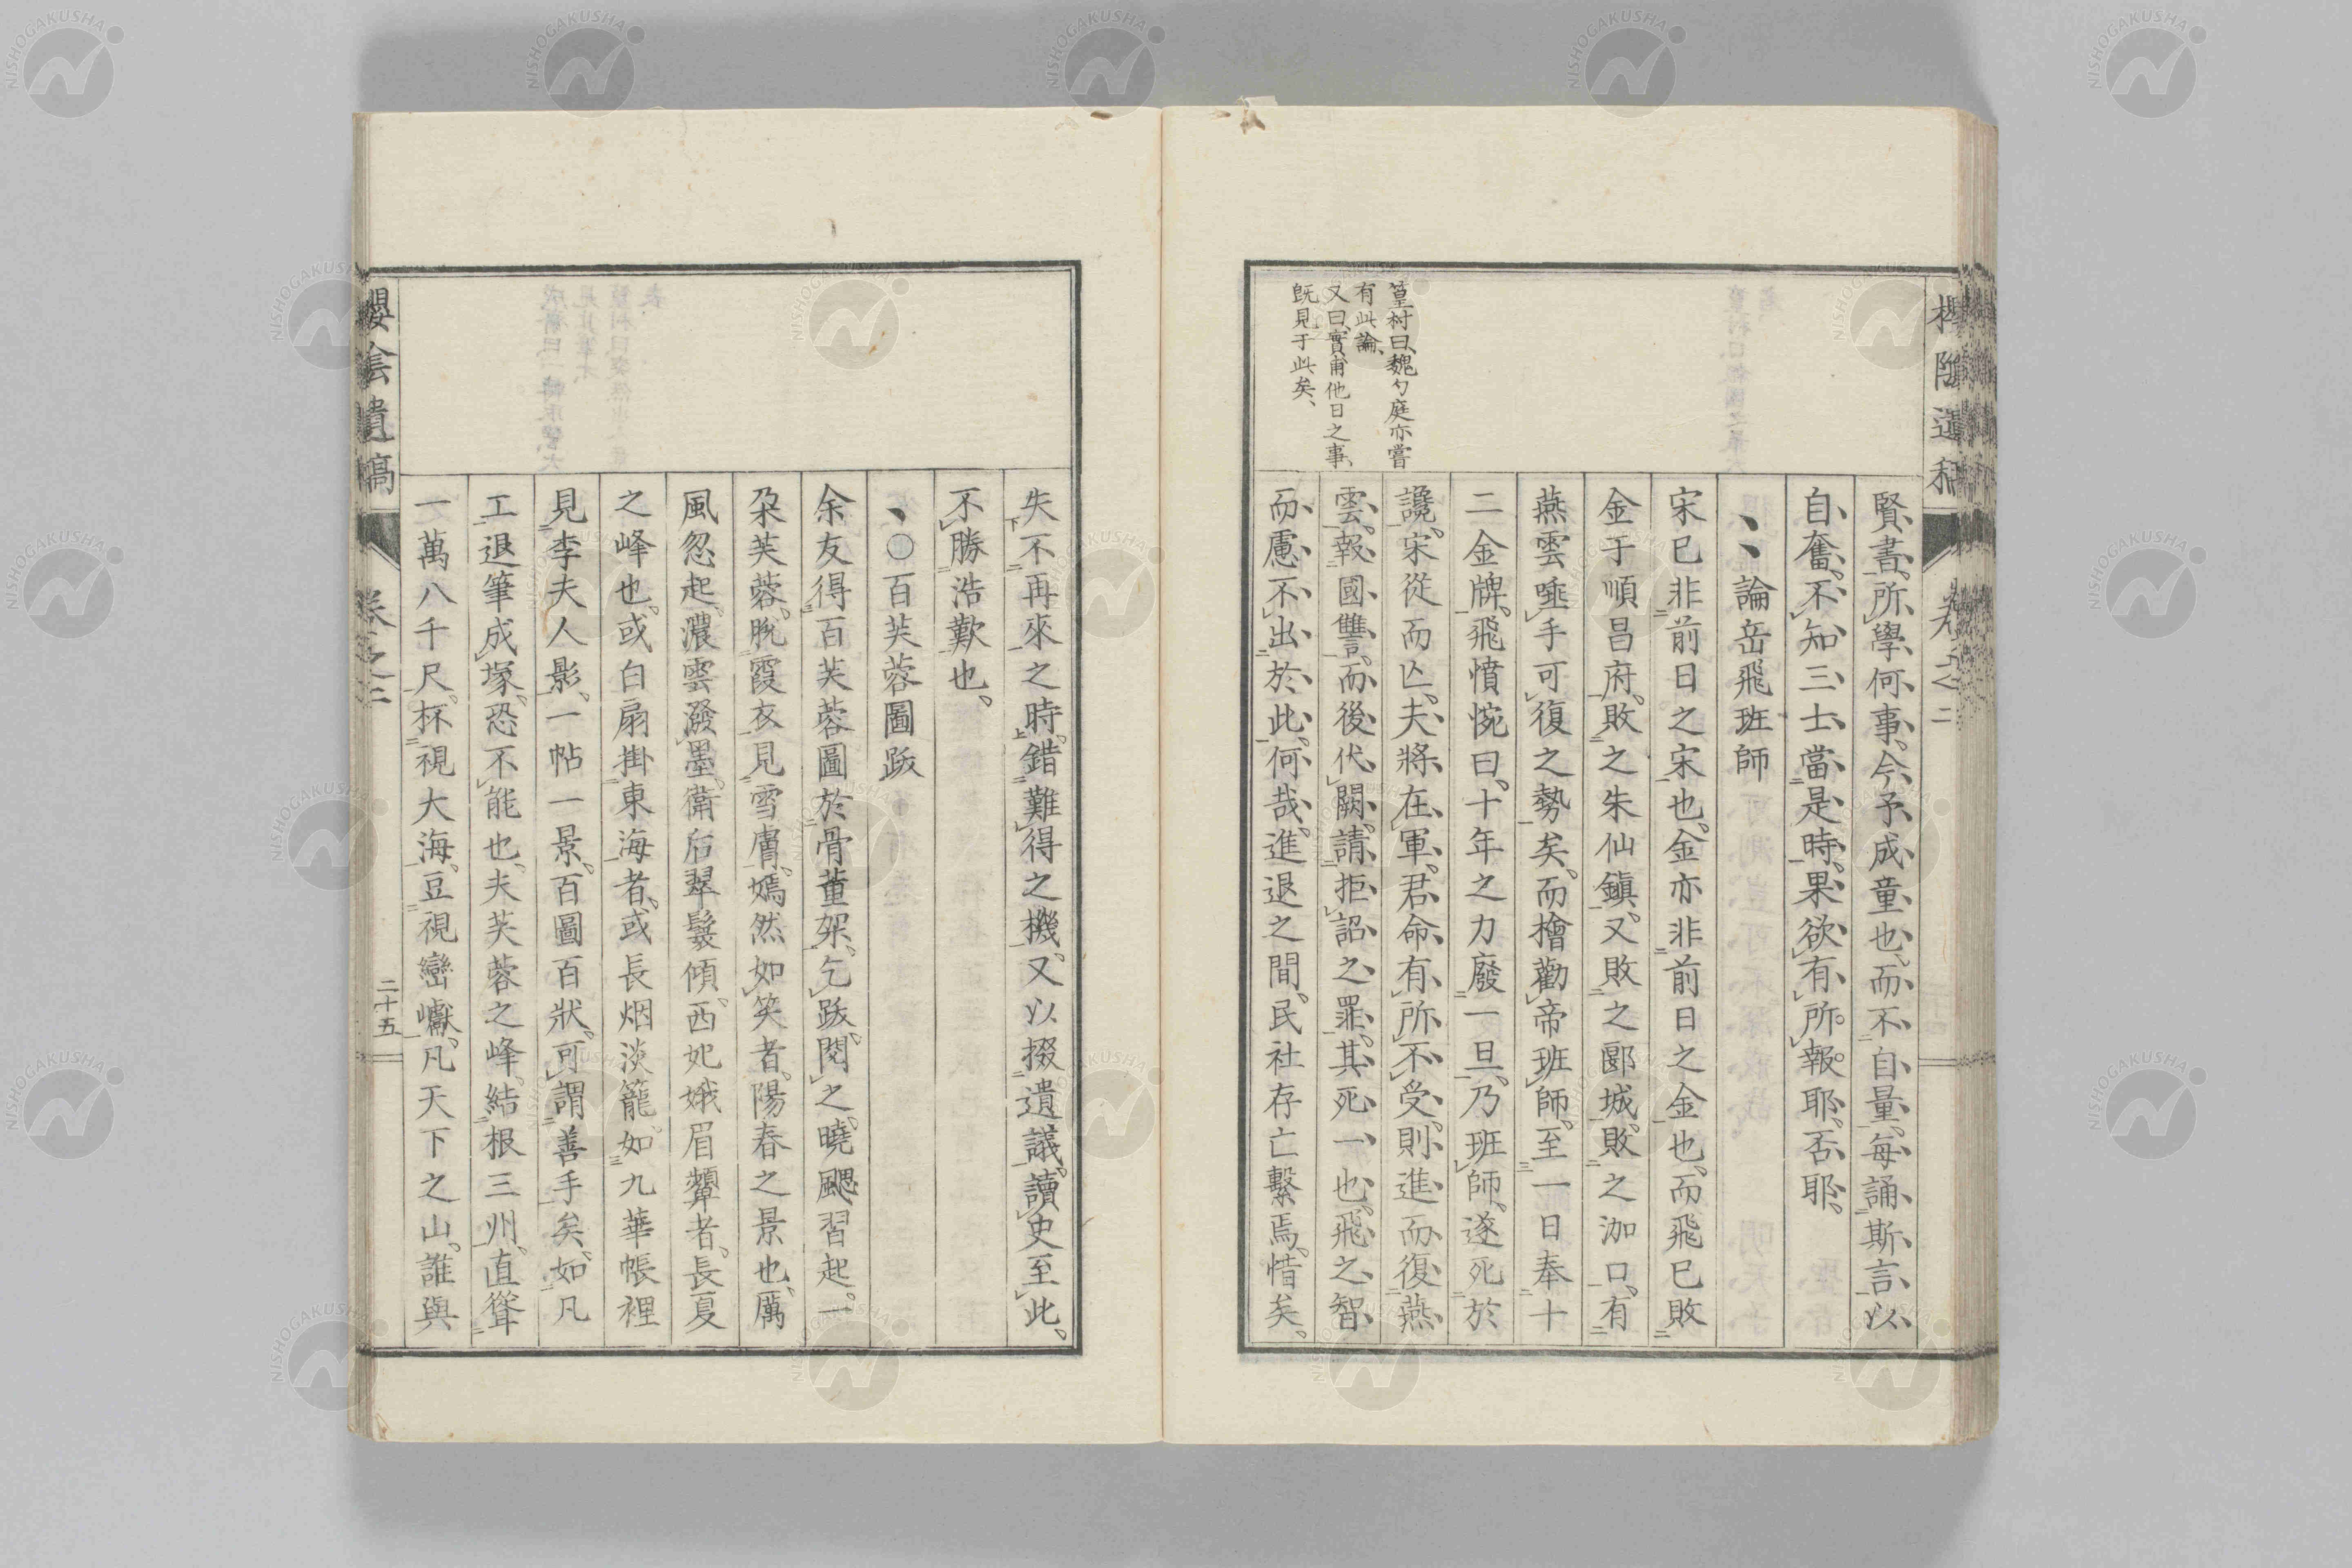 櫻陰遺稿
卷之二
賢書、所學何事、今予成童也、而不自量、每誦斯言、以
自奮、不知三士當是時、果欲有所報耶、否耶、
論岳飛班師
宋已非前日之宋也、金亦非前日之金也、而飛已敗
金于順昌府、敗之朱仙鎭、又敗之郾城、敗之泇口、有
燕雲唾手可復之勢矣、而檜勸帝班師、至一日奉十
二金牌、飛憤惋曰、十年之力廢一旦、乃班師、遂死於
讒、宋從而亾、夫將在軍、君命有所不受、則進而復燕
雲、報國讐、而後伏闕、請拒詔之罪、其死一也、飛之智
而慮不出於此、何哉、進退之間、民社存亡繫焉、惜矣、
篁村曰、魏勺庭亦嘗
有此論、
又曰、實甫他日之事、
旣見于此矣、
失不再來之時、錯難得之機、又以掇遺議、讀史至此、
不勝浩歎也、
〇百芙蓉圖跋
余友得百芙蓉圖於骨董架、乞跋、閱之、曉颸習起、一
朶芙蓉、脫霞衣見雪膚、嫣然如笑者、陽春之景也、厲
風忽起、濃雲潑墨、衛后翠鬟傾、西妃娥眉顰者、長夏
之峰也、或白扇掛東海者、或長烟淡籠、如九華帳裡
見李夫人影、一帖一景、百圖百狀、可謂善手矣、如凡
工退筆成塚、恐不能也、夫芙蓉之峰、結根三州、直聳
一萬八千尺、杯視大海、豆視巒巘、凡天下之山、誰與
櫻陰遺稿
卷之二
二十五
NISHOGAKUSHA